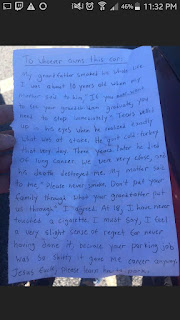 46% 11:32 PM
To whoever owns this car:
My grandfather smoked his whole life.
I was about 10 years old when my
mother said to him, "If you ever want
to see your grandchildren graduate, you
have to stop immediately." Tears welled
up in his eyes when he realized exactly
what was at stake. He quit cold-turkey
that very day. Three years later he died
of lung cancer. We were very close, and
his death destroyed me. My mother said
to me, "Please never smoke. Don't put your
family through what your grandfather put
us through." I agreed. At 18, I have never
touched a cigarette. I must say, I feel
a very slight sense of regret for never
having done it, because your parking job
was so shitty it gave me cancer anyway.
Jesus fuck, please learn how to park.